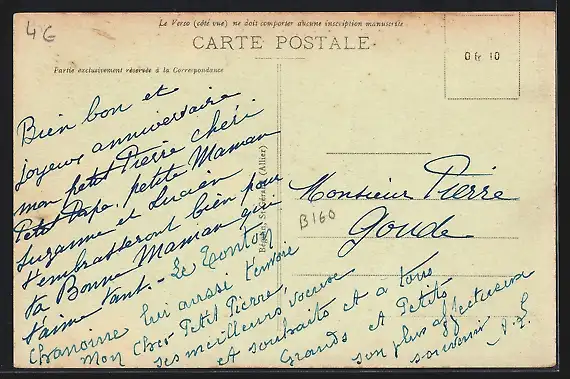 4€
Le Verso (côté vue) ne doit comporter aucune inscription manuscrite
CARTE POSTALE
0 fr 10
Partie exclusivement réservée à la Correspondance
Bien bon et
joyeux anniversaire
mon petit Pierre chéri
Petit Papa, petite Maman
Suzanne et Lucien
t'embrasseront bien pour
ta Bonne Maman qui
t'aime tant. - Le Tonton
Chanoine lui aussi t'envoie
mon cher Petit Pierre,
ses meilleurs voeux
et souhaits et à tous
Grands et Petits
son plus affectueux
souvenir
(Allier)
Monsieur Pierre
Goude
B160